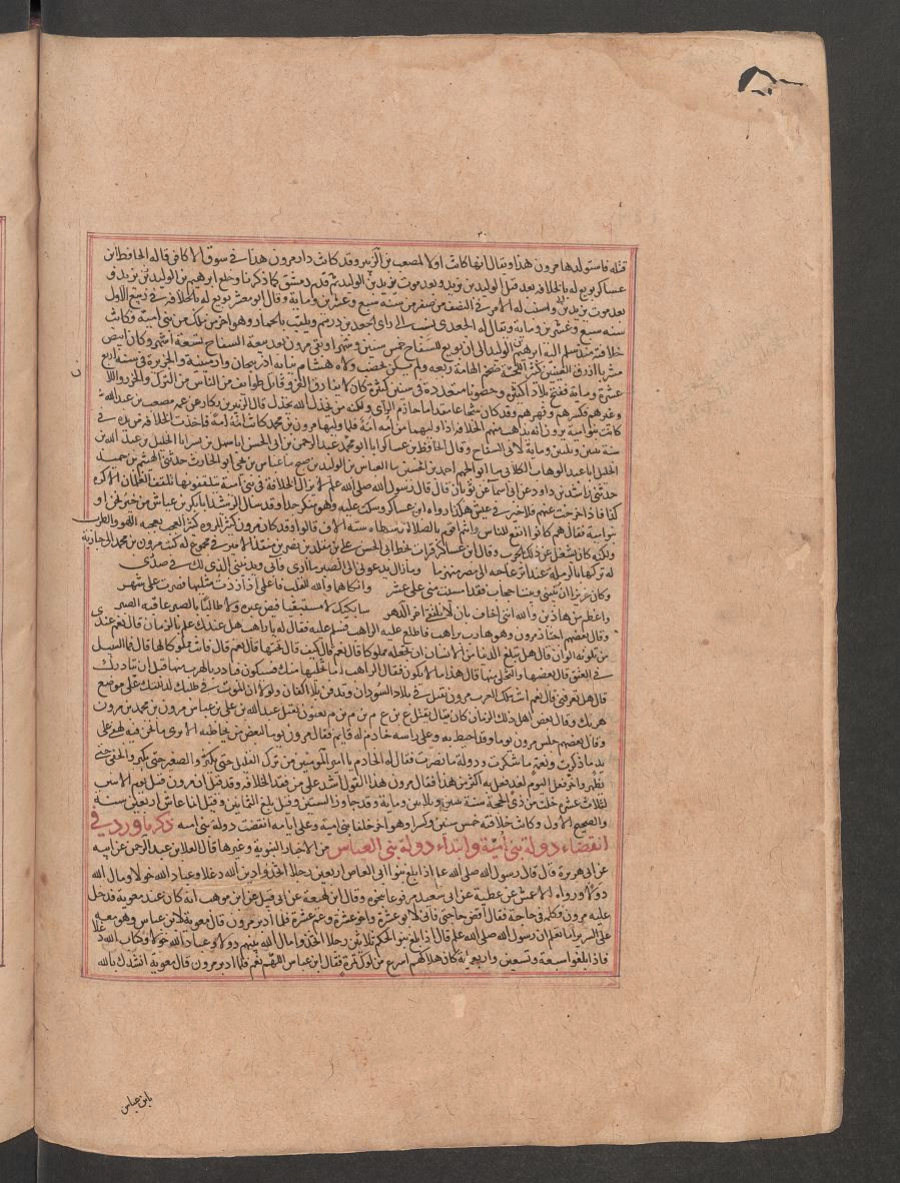 قتله فاستولدها مرون هذا ويقال انها كانت اولا لمصعب بن الزبير وقد كانت دار مرون هذا في سوق الاكافين قاله الحافظ ابن
عساكر بويع له بالخلافة بعد قتل الوليد بن يزيد وبعد موت يزيد بن الوليد ثم قدم دمشق كما ذكرنا وخلع ابرهيم بن الوليد
واستمر له الامر في النصف من صفر من سنة سبع وعشرين وماية وقال ابو معشر بويع له بالخلافة في ربيع الاول
سنة سبع وعشرين وماية وكان يقال له الجعدي نسبة الى راى الجعد بن درهم ويلقب بالحمار وهو اخر من ملك من بني امية وكانت
خلافته منذ سلم اليه ابرهيم بن الوليد الى ان بويع للسفاح خمس سنين وشهرا وبقي مرون بعد بيعة السفاح تسعة اشهر وكان ابيض
مشربا ازرق العينين كبير اللحية ضخم الهامة ربعة ولم يكن يخضب ولاه هشام نيابة اذربيجان وارمينية والجزيرة في سنة اربع
عشرة وماية ففتح بلادا كثيرة وحصونا متعددة في سنين كثيرة وكان لا يفارق الغزو وقاتل طوايف من الناس من الترك والخزر واللان
وغيرهم فكسرهم وقهرهم وقد كان شجاعا مقداما حازم الراي ولكنه من يخذل الله يخذل قال الزبير بن بكار عن عمه مصعب بن عبد الله
كانت بنو امية يرون انه تذهب منهم الخلافة اذا وليها من امه امة فلما وليها مرون بن محمد كانت امه امة فاخذت الخلافة من يده في
سنة ثنتين وثلثين وماية لابي السفاح وقال الحافظ بن عساكر انا ابو محمد عبد الرحمن بن ابي الحسن انا سهل بن بشر انا الخليل بن هبة الله بن
الخليل انا عبد الوهاب الكلابي ثنا ابو الجهم احمد بن الحسين انا العباس بن الوليد بن صبح ثنا عباس بن يحيى ابو الحارث حدثني الهيثم بن حميد
حدثني راشد بن داود عن ابي اسما عن ثوبان قال قال رسول الله صلى الله عليه وسلم لا تزال الخلافة في بني امية يتلقفونها تلقف الغلمان الاكرة
فاذا خرجت منهم فلا خير في عيش هكذا رواه ابن عساكر وسكت عليه وهو منكر جدا وقد سال الرشيد ابا بكر بن عياش من خير نحن او
بنو امية فقال هم كانوا انفع للناس وانتم اقوم بالصلاة
له تركها بالرملة عند انزعاجه الى مصر منهزما وما زال يدعوني الى الصبر ما ارى فابى ويدنيني الذي لك في صدري
وكان عزيزا ان تبيني وبيننا حجاب فقد امسيت مني على عشر وانكاهما والله للقلب فاعلمي اذا زدت مثليها فصرت على شهر
واعظم من هذين والله انني اخاف بان لا نلتقي اخر الدهر سابكيك لا مستبقيا فيض عبرة ولا طالبا بالصبر عاقبة الصبر
وقال بعضهم اجتاز مرون وهو هارب براهب فاطلع عليه الراهب فسلم عليه فقال له يا راهب هل عندك علم بالزمان قال نعم عندي
من تلونه الوان قال هل تبلغ الدنيا من الانسان ان تجعله مملوكا قال نعم قال كيف قال بحبها قال نعم قال فانت مملوك لها قال فما السبيل
في العتق قال ببغضها والتخلي عنها قال هذا ما لا يكون فقال الراهب اما تخليها منك فسيكون فبادر بالهرب منها قبل ان تبادرك
قال هل تعرفني قال نعم انت ملك العرب مرون تقتل في بلاد السودان وتدفن بلا اكفان ولولا ان الموت في طلبك لدللتك على موضع
هربك وقال بعض اهل ذلك الزمان كان يقال يقتل ع بن ع بن ع م بن م بن م يعنون يقتل عبد الله بن علي بن عباس مرون بن محمد بن مرون
وقال بعضهم جلس مرون يوما وقد احيط به وعلى راسه خادم له قايم فقال مرون يوما لبعض من يخاطبه الا ترى ما نحن فيه لهفي على
يد ما ذكرت ونعمة ما شكرت ودولة ما نصرت فقال له الخادم يا امير المومنين من ترك القليل حتى يكثر والصغير حتى يكبر والخفي حتى
يظهر واخر فعل اليوم لغد فعل به اكثر من هذا فقال مرون هذا القول اشد علي من فقد الخلافة وقد قيل ان مرون قتل يوم الاثنين
لثلاث عشرة خلت من ذي الحجة سنة ثنتين وثلاثين وماية وقد جاوز الستين وقيل بلغ الثمانين وقيل انما عاش اربعين سنة
والصحيح الاول وكانت خلافته خمس سنين وكسرا وهو اخر خلفا بني امية وعلى ايامه انقضت دولة بني امية ذكر ما ورد في
انقضاء دولة بني امية وابتداء دولة بني العباس من الاخبار النبوية وغيرها قال العلا بن عبد الرحمن عن ابيه
عن ابي هريرة قال قال رسول الله صلى الله عليه اذا بلغ بنو ابي العاص اربعين رجلا اتخذوا دين الله دغلا وعباد الله خولا ومال الله
دولا ورواه الاعمش عن عطية عن ابي سعيد مرفوعا نحوه وقال ابن لهيعة عن ابي قبيل عن ابن موهب انه كان عند معوية فدخل
عليه مرون فكلمه في حاجة فقال اقض حاجتي فاني لابو عشرة واخو عشرة وعم عشرة فلما ادبر مرون قال معوية لابن عباس وهو معه
على السرير اما تعلم ان رسول الله صلى الله عليه قال اذا بلغ بنو الحكم ثلاثين رجلا اتخذوا مال الله بينهم دولا وعباد الله خولا وكتاب الله دغلا
فاذا بلغوا سبعة وتسعين واربعماية كان هلاكهم اسرع من لوك تمرة فقال ابن عباس اللهم نعم فلما ادبر مرون قال معوية انشدك بالله
يا بن عباس